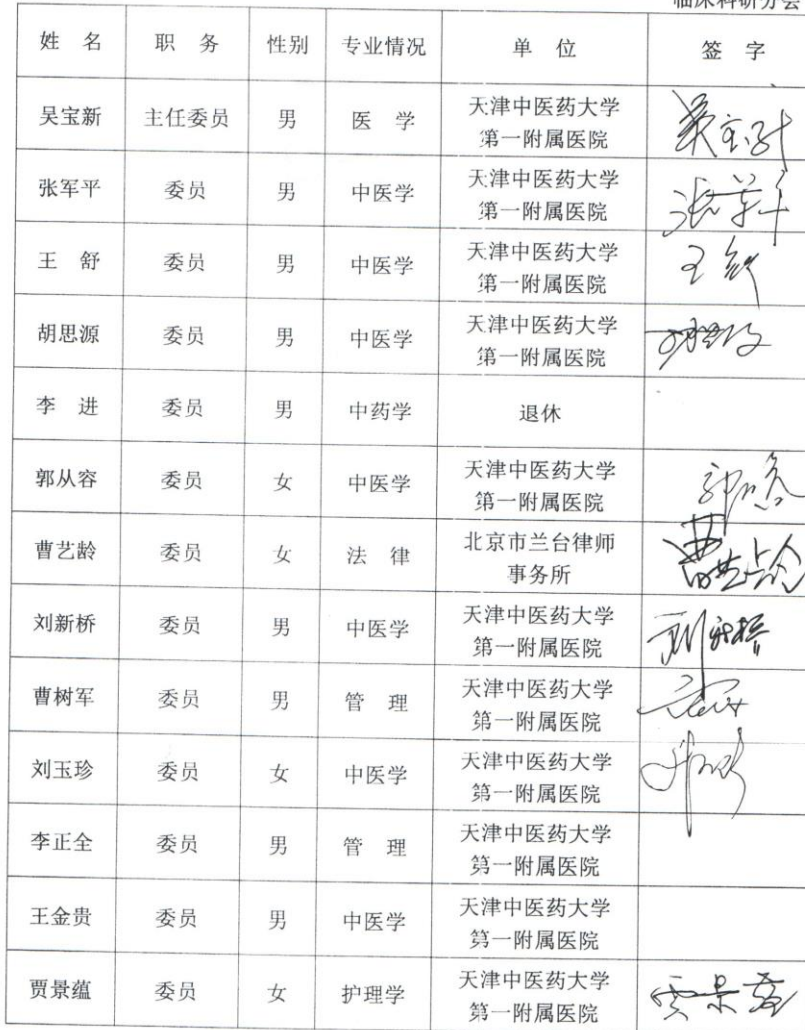 临床科研分会
姓 名 职 务 性别 专业情况 单 位 签 字
吴宝新 主任委员 男 医 学 天津中医药大学
第一附属医院 吴宝新
张军平 委员 男 中医学 天津中医药大学
第一附属医院 张军平
王 舒 委员 男 中医学 天津中医药大学
第一附属医院 王舒
胡思源 委员 男 中医学 天津中医药大学
第一附属医院
李 进 委员 男 中药学 退休
郭从容 委员 女 中医学 天津中医药大学
第一附属医院
曹艺龄 委员 女 法 律 北京市兰台律师
事务所 曹艺龄
刘新桥 委员 男 中医学 天津中医药大学
第一附属医院 刘新桥
曹树军 委员 男 管 理 天津中医药大学
第一附属医院
刘玉珍 委员 女 中医学 天津中医药大学
第一附属医院
李正全 委员 男 管 理 天津中医药大学
第一附属医院
王金贵 委员 男 中医学 天津中医药大学
第一附属医院
贾景蕴 委员 女 护理学 天津中医药大学
第一附属医院 贾景蕴